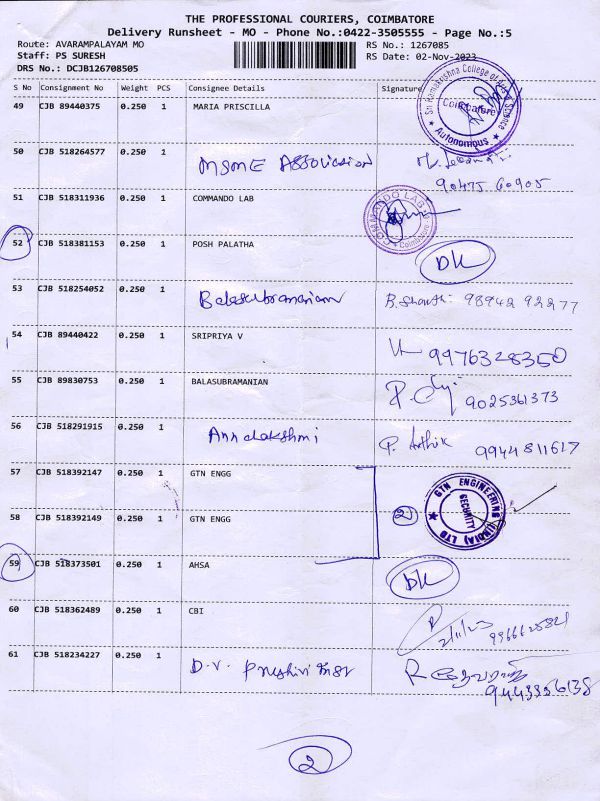 THE PROFESSIONAL COURIERS, COIMBATORE
Delivery Runsheet - MO - Phone No.:0422-3505555 - Page No.:5
Route: AVARAMPALAYAM MO RS No.: 1267085
Staff: PS SURESH RS Date: 02-Nov-2023
DRS No.: DCJB126708505
S No Consignment No Weight PCS Consignee Details Signature
Sri Ramakrishna College of Arts & Science Coimbatore Autonomous
49 CJB 89440375 0.250 1 MARIA PRISCILLA
50 CJB 518264577 0.250 1 MSME Association
90475 60905
51 CJB 518311936 0.250 1 COMMANDO LAB COMMANDO LAB Coimbatore
52 CJB 518381153 0.250 1 POSH PALATHA DK
53 CJB 518254052 0.250 1 Balasubramaniam B. Shanthi 98942 92277
54 CJB 89440422 0.250 1 SRIPRIYA V 9976328350
55 CJB 89830753 0.250 1 BALASUBRAMANIAN 9025361373
56 CJB 518291915 0.250 1 Annalakshmi P. 9944811617
57 CJB 518392147 0.250 1 GTN ENGG GTN ENGINEERING (INDIA) LTD SECURITY
58 CJB 518392149 0.250 1 GTN ENGG 2
59 CJB 518373501 0.250 1 AHSA DK
60 CJB 518362489 0.250 1 CBI 2/11/23
61 CJB 518234227 0.250 1 D.V. R
2